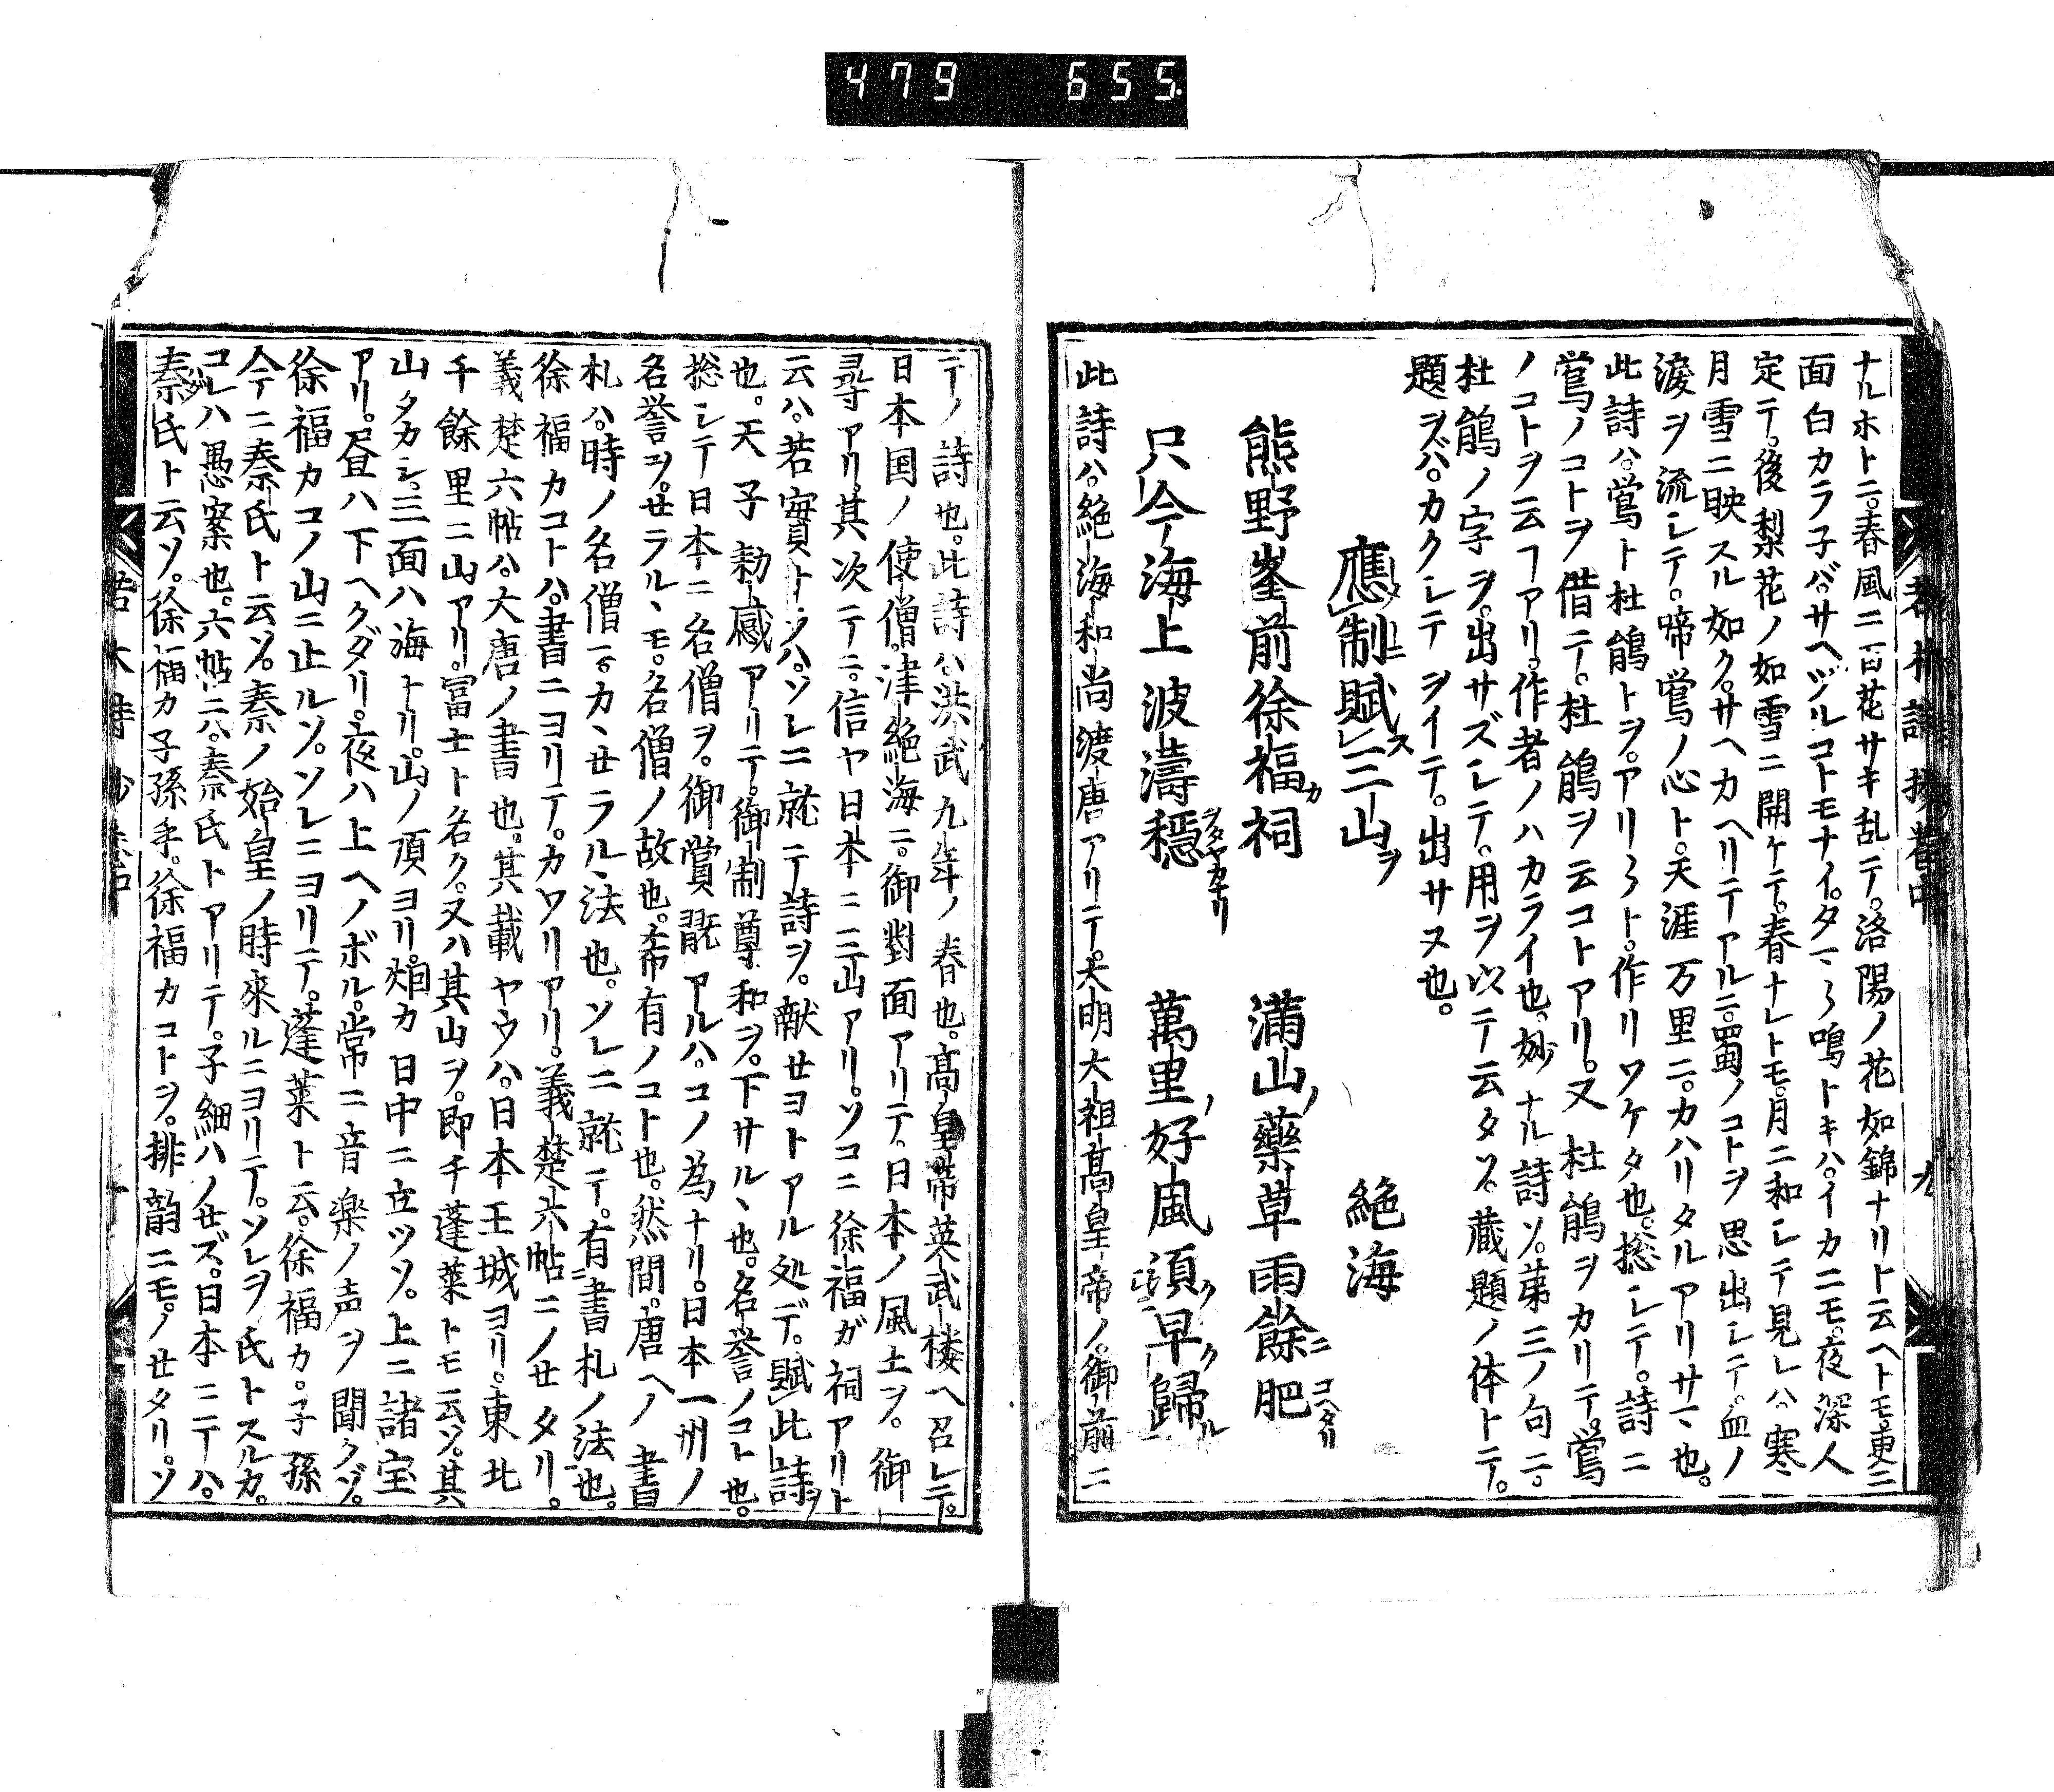 479 655.
ナルホトニ。春風ニ百花サキ乱テ。洛陽ノ花如錦ナリト云ヘトモ。更ニ
面白カラ子バ。サヘヅルコトモナイ。タマ〻鳴トキハ。イカニモ。夜深人
定テ。後梨花ノ如雪ニ開ケテ。春ナレトモ。月ニ和シテ見レハ。寒〻
月雪ニ映スル如ク。サヘカヘリテアルニ。蜀ノコトヲ思出シテ。血ノ
涙ヲ流シテ。啼鵑ノ心ト。天涯万里ニ。カハリタルアリサマ也。
此詩ハ。鶯ト杜鵑トヲ。アリ〳〵ト。作リワケタ也。捴シテ。詩ニ
鶯ノコトヲ借テ。杜鵑ヲ云コトアリ。又杜鵑ヲカリテ。鶯
ノコトヲ云ヿアリ。作者ノハカライ也。妙ナル詩ソ。第三ノ句ニ。
杜鵑ノ字ヲ。出サズシテ。用ヲ以テ云タソ。蔵題ノ体トテ。
題ヲバ。カクシテヲイテ。出サヌ也。
應制賦三山 絶海
熊野峯前徐福祠 満山藥草雨餘肥
只今海上波濤穏 萬里好風須早歸
此詩ハ。絶海和尚渡唐アリテ。大明大祖髙皇帝ノ。御前ニ
テノ詩也。此詩ハ。洪武九年ノ春也。髙皇帝英武楼ヘ召シテ。
日本国ノ使僧。津絶海ニ。御對面アリテ。日本ノ風土ヲ。御
尋アリ。其次テニ。信ヤ日本ニ三山アリ。ソコニ徐福ガ祠アリト
云ハ。若實ナソハ。ソレニ就テ詩ヲ。献セヨトアル処デ。賦此詩
也。天子勅感アリテ。御制尊和ヲ。下サル〻也。名誉ノコト也。
捴シテ日本ニ名僧ヲ。御賞翫アルハ。コノ為ナリ。日本一州ノ
名誉ヲ。セラル〻モ。名僧ノ故也。希有ノコト也。然間。唐ヘノ書
札ハ。時ノ名僧ニ。カ〻セラル〻法也。ソレニ就テ。有書札ノ法也。
徐福カコトハ。書ニヨリテ。カワリアリ。義楚六帖ニノセタリ。
義楚六帖ハ。大唐ノ書也。其載ヤウハ。日本王城ヨリ。東北
千餘里ニ山アリ。富士ト名ク。又ハ其山ヲ。即チ蓬莱トモ云ソ。其
山タカシ。三面ハ海トリ。山ノ頂ヨリ。烟カ日中ニ立ツソ。上ニ諸宝
アリ。昼ハ下ヘクダリ。夜ハ上ヘノボル。常ニ音楽ノ声ヲ聞クゾ。
徐福カコノ山ニ止ルソ。ソレニヨリテ。蓬莱ト云。徐福カ。子孫
今ニ秦氏ト云ソ。秦ノ始皇ノ時來ルニヨリテ。ソレヲ氏トスルカ。
コレハ愚案也。六帖ニハ。秦氏トアリテ。子細ハノセズ。日本ニテハ。
秦氏ト云ソ。徐福カ子孫乎。徐福カコトヲ。排韵ニモ。ノセタリ。ソ